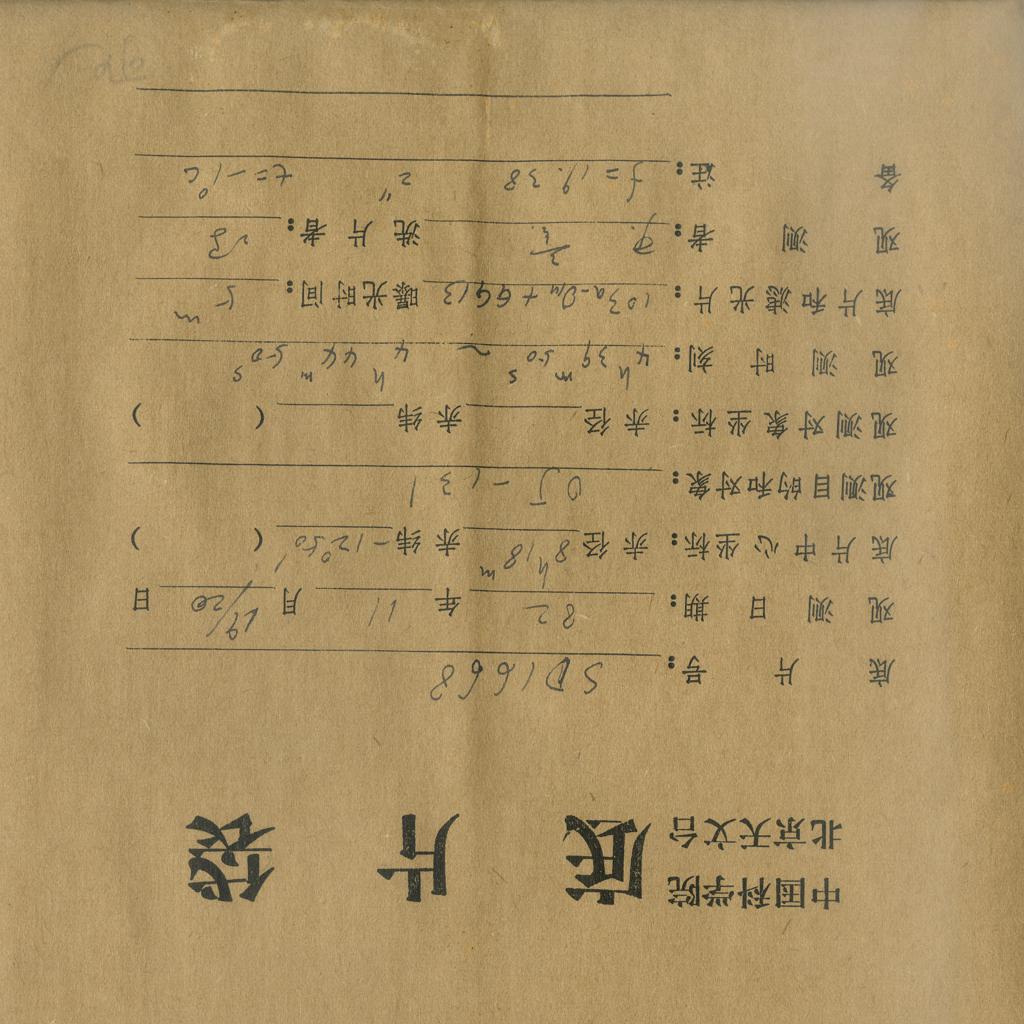 中国科学院
北京天文台
底片袋
底片号: SD1668
观测日期: 82年11月19/20日
底片中心坐标: 赤径 8h18m 赤纬 -12°50′ ( )
观测目的和对象: OJ-131
观测对象坐标: 赤径 赤纬 ( )
观测时刻: 4h39m50s ~ 4h44m50s
底片和滤光片: + GG13 曝光时间: 5m
观测者: 洗片者:
备注: f=19.38 2″ t=-1°C